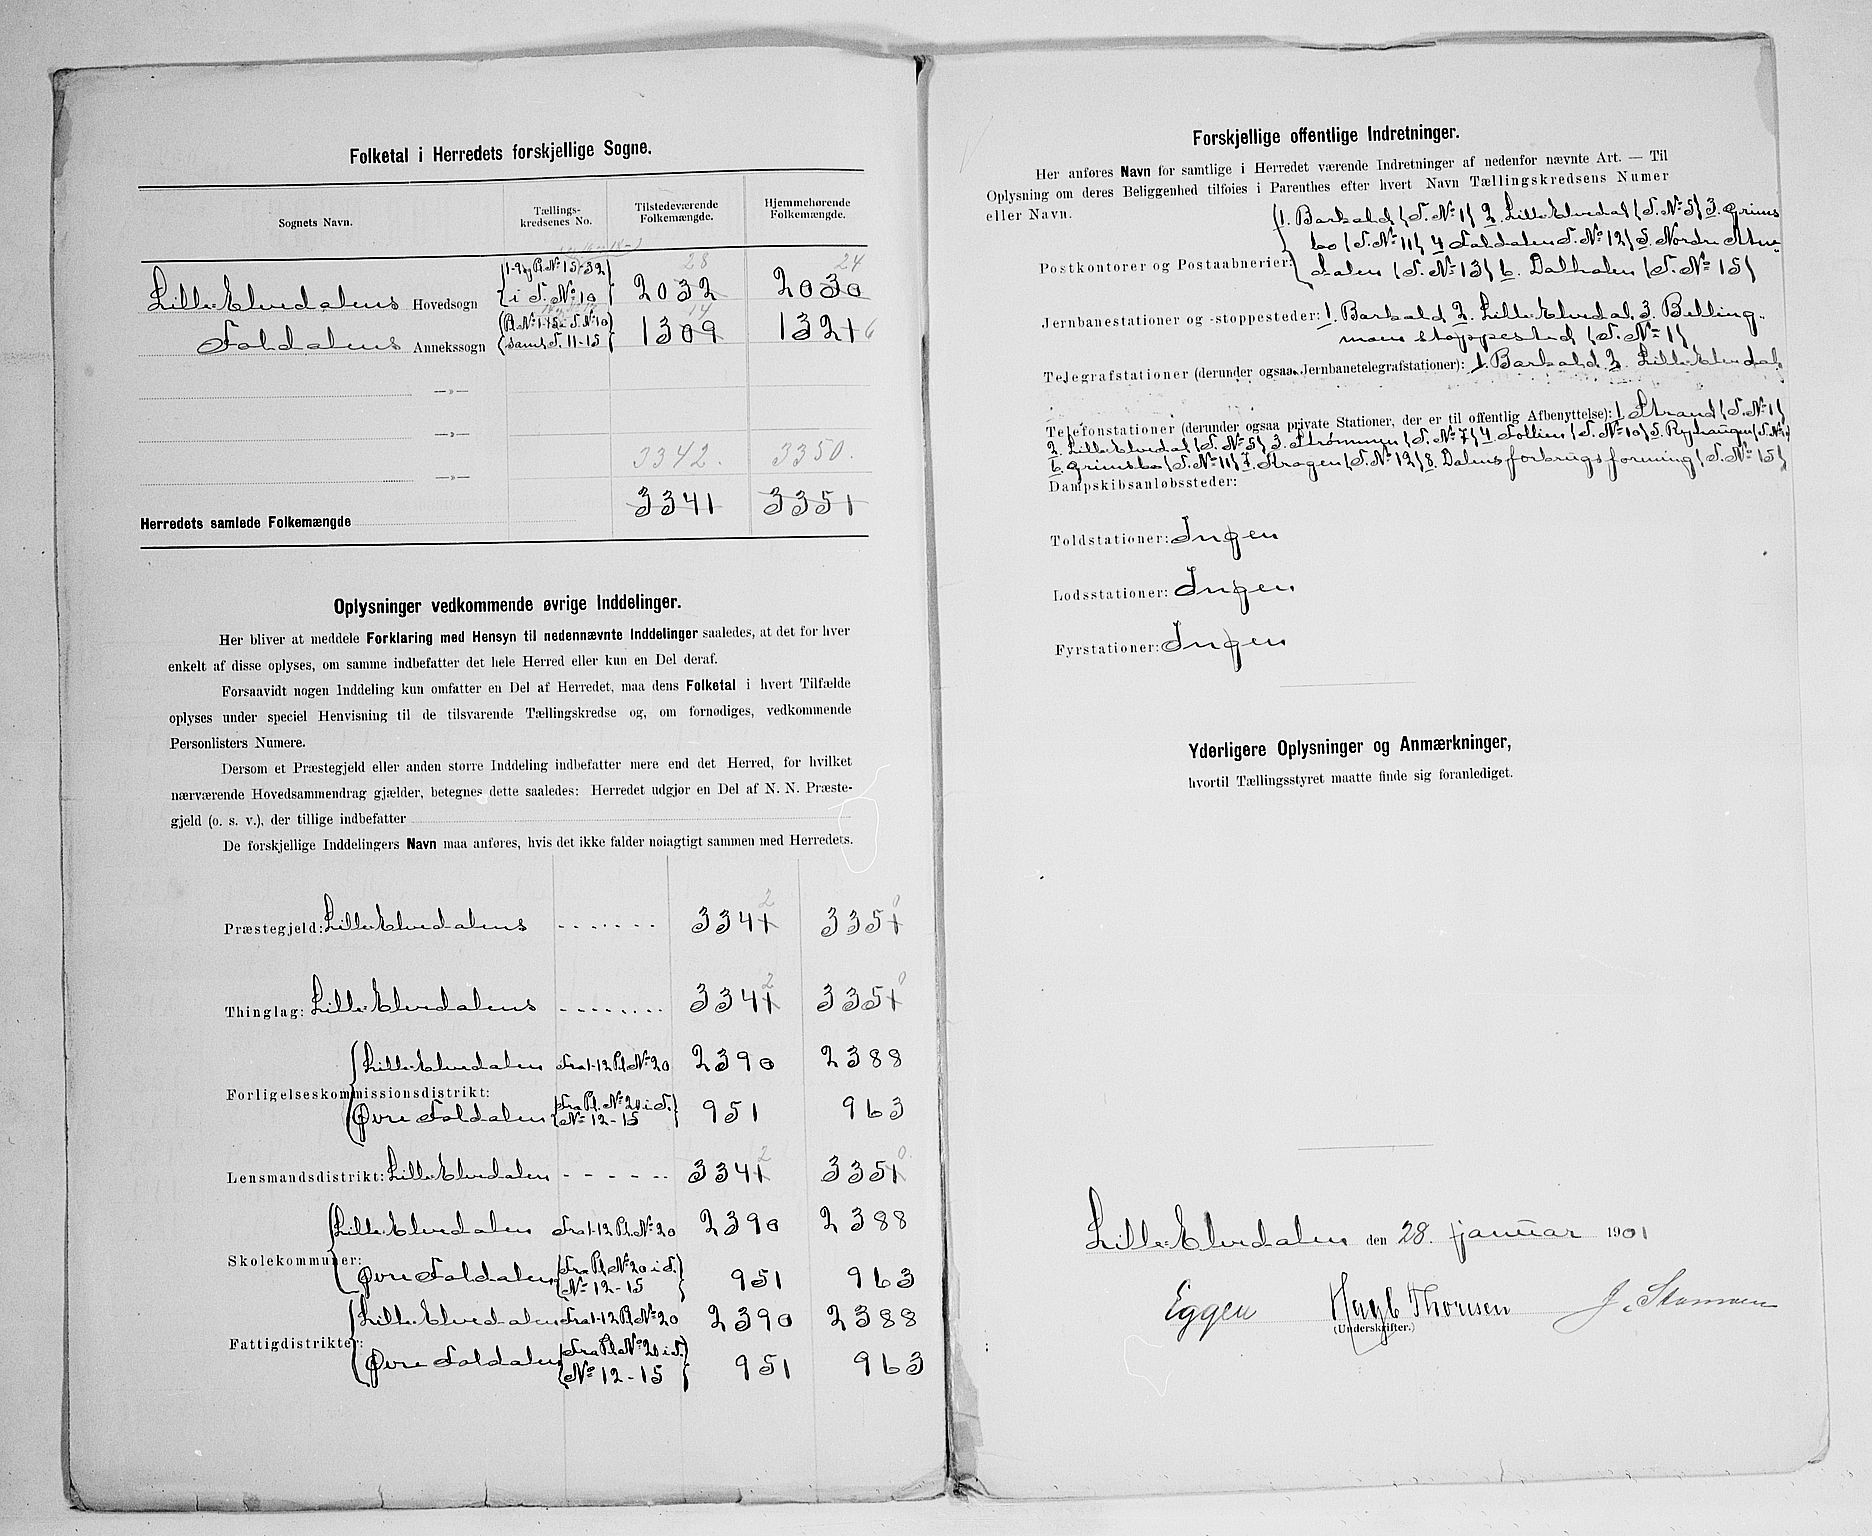 Folketal i Herredets forskjellige Sogne.
Sognets Navn.
Tællings-
kredsenes No.
Tilstedeværende
Folkemængde.
Hjemmehørende
Folkemængde.
28 24
1-9 og Pl. No 15-32
Lille Elvedalens Hovedsogn i T. No 10 2032 2030
14
Pl. No 1-15 i T. No 10
Foldalens Annekssogn samt T. 11-15 1309 1321 6
—»—
—»—
3342. 3350.
—»—
3341 3351
Herredets samlede Folkemængde
Oplysninger vedkommende øvrige Inddelinger.
Her bliver at meddele Forklaring med Hensyn til nedennævnte Inddelinger saaledes, at det for hver
enkelt af disse oplyses, om samme indbefatter det hele Herred eller kun en Del deraf.
Forsaavidt nogen Inddeling kun omfatter en Del af Herredet, maa dens Folketal i hvert Tilfælde
oplyses under speciel Henvisning til de tilsvarende Tællingskredse og, om fornødiges, vedkommende
Personlisters Numere.
Dersom et Præstegjeld eller anden større Inddeling indbefatter mere end det Herred, for hvilket
nærværende Hovedsammendrag gjælder, betegnes dette saaledes: Herredet udgjør en Del af N. N. Præste-
gjeld (o. s. v.), der tillige indbefatter
De forskjellige Inddelingers Navn maa anføres, hvis det ikke falder nøiagtigt sammen med Herredets.
2 0
Præstegjeld: Lille Elvedalens 3341 3351
2 0
Thinglag: Lille Elvedalens 3341 3351
Lille Elvedalen Fra 1-12 Pl. No 20 2390 2388
Forligelseskommissionsdistrikt:
Øvre Foldalen Fra Pl. No 20 i T. No 12-15 951 963
2 0
Lensmandsdistrikt: Lille Elvedalen 3341 3351
Lille Elvedalen Fra 1-12 Pl. No 20 2390 2388
Skolekommuner:
Øvre Foldalen Fra Pl. No 20 i T. No 12-15 951 963
Lille Elvedalen Fra 1-12 Pl. No 20 2390 2388
Fattigdistrikter:
Øvre Foldalen Fra Pl. No 20 i T. No 12-15 951 963
Forskjellige offentlige Indretninger.
Her anføres Navn for samtlige i Herredet værende Indretninger af nedenfor nævnte Art. — Til
Oplysning om deres Beliggenhed tilføies i Parenthes efter hvert Navn Tællingskredsens Numer
eller Navn.
1. Barkald (T. No 1) 2. Lille Elvedal (T. No 5) 3. Grims
bo (T. No 11) 4 Foldalen T. No 12) 5. Nordre Atne-
Postkontorer og Postaabnerier: dalen (T. No 13) 6. Dalholen (T. No 15)
Jernbanestationer og -stoppesteder: 1. Barkald 2. Lille Elvedal. 3. Belling-
moen stoppested (T. No 1)
Telegrafstationer (derunder ogsaa Jernbanetelegrafstationer): 1. Barkald 2. Lille Elvedal.
Telefonstationer (derunder ogsaa private Stationer, der er til offentlig Afbenyttelse): 1. Strand (T. No 1)
2. Lille Elvedal (T. No 5) 3. Strømmen (T. No 7) 4 Follien (T. No 10) 5. Ryhaugen (T. No
6. Grimsbo (T. No 11) 7. Krogen (T. No 12) 8. Dalens forbrugsforening (T. No 15)
Dampskibsanløbssteder:
Toldstationer: Ingen
Lodsstationer: Ingen
Fyrstationer: Ingen
Yderligere Oplysninger og Anmærkninger,
hvortil Tællingsstyret maatte finde sig foranlediget.
Lille Elvedalen den 28. januar 1901
Eggen Hagb Thoresen J.
(Underskrifter.)